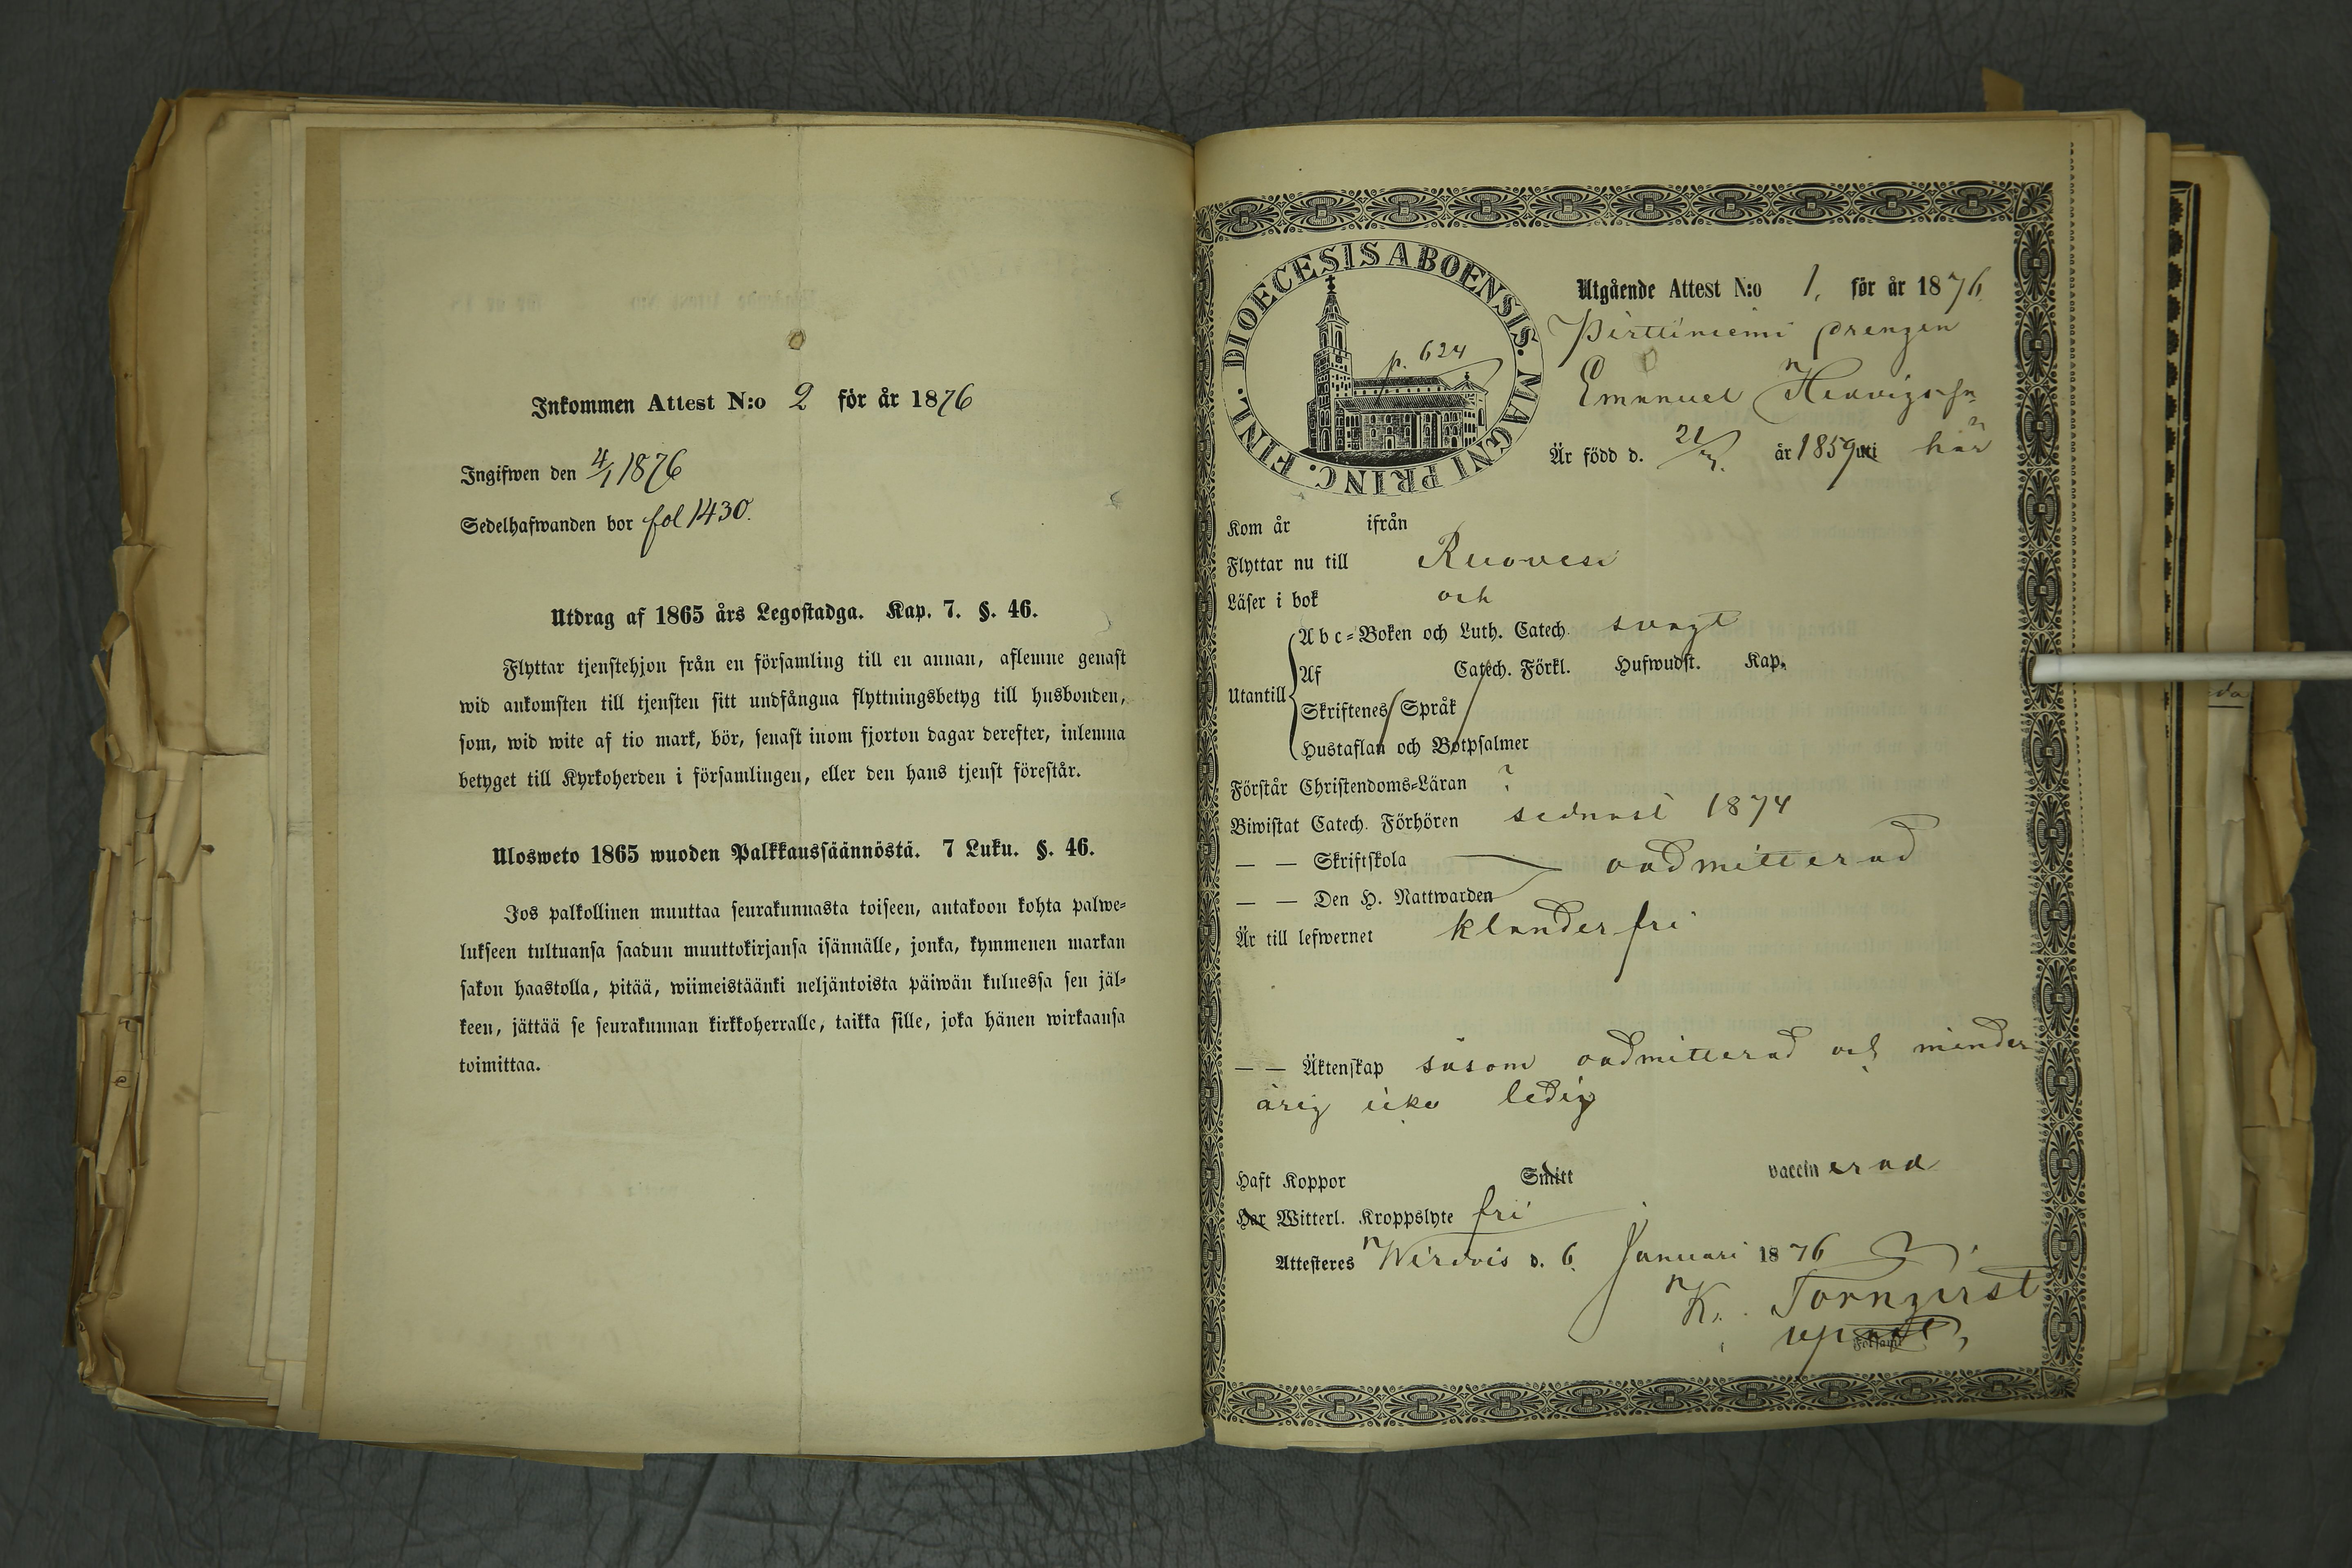 Inkommen Attest N:o 2 för år 1876
Ingifwen den 4/1 1876
Sedelhafwanden bor fol 1430.
Utdrag af 1865 års Legostadga. Kap. 7. §. 46.
Flyttar tjenstehjon från en församling till en annan, aflemne genast
wid ankomsten till tjensten sitt undfångna flyttningsbetyg till husbonden,
som, wid wite af tio mark, bör, senast inom fjorton dagar derefter, inlemna
betyget till Kyrkoherden i församlingen, eller den hans tjenst förestår.
Ulosweto 1865 wuoden Palkkaussäännöstä. 7 Luku. §. 46.
Jos palkollinen muuttaa seurakunnasta toiseen, antakoon kohta palwe-
lukseen tultuansa saadun muuttokirjansa isännälle, jonka, kymmenen markan
sakon haastolla, pitää, wiimeistäänki neljäntoista päiwän kuluessa sen jäl-
keen, jättää se seurakunnan kirkkoherralle, taikka sille, joka hänen wirkaansa
toimittaa.
DIOECESIS ABOENSIS. MAGNI PRINC. FINL.
p. 624
Utgående Attest N:o 1, för år 1876
Pirttiniemi drengen
Emanuel Hedvigsson
Är född d. 21/ år 1859 uti här
Kom år ifrån
Flyttar nu till Ruovesi
Läser i bok och
Utantill
Abc-Boken och Luth. Catech. svagt
Af Catech. Förkl. Hufwudst. Kap.
Skriftenes Språk
Hustaflan och Botpsalmer
Förstår Christendoms-Läran ?
Biwistat Catech. Förhören sednast 1874
— — Skriftskola oadmitterad
— — Den H. Nattwarden
Är till lefwernet klanderfri
— — Äktenskap såsom oadmitterad och minder
årig icke ledig
Haft Koppor Smitt vaccinerad
Har Witterl. Kroppslyte fri
Attesteres Wirdois d. 6 Januari 1876
K. Tornqvist